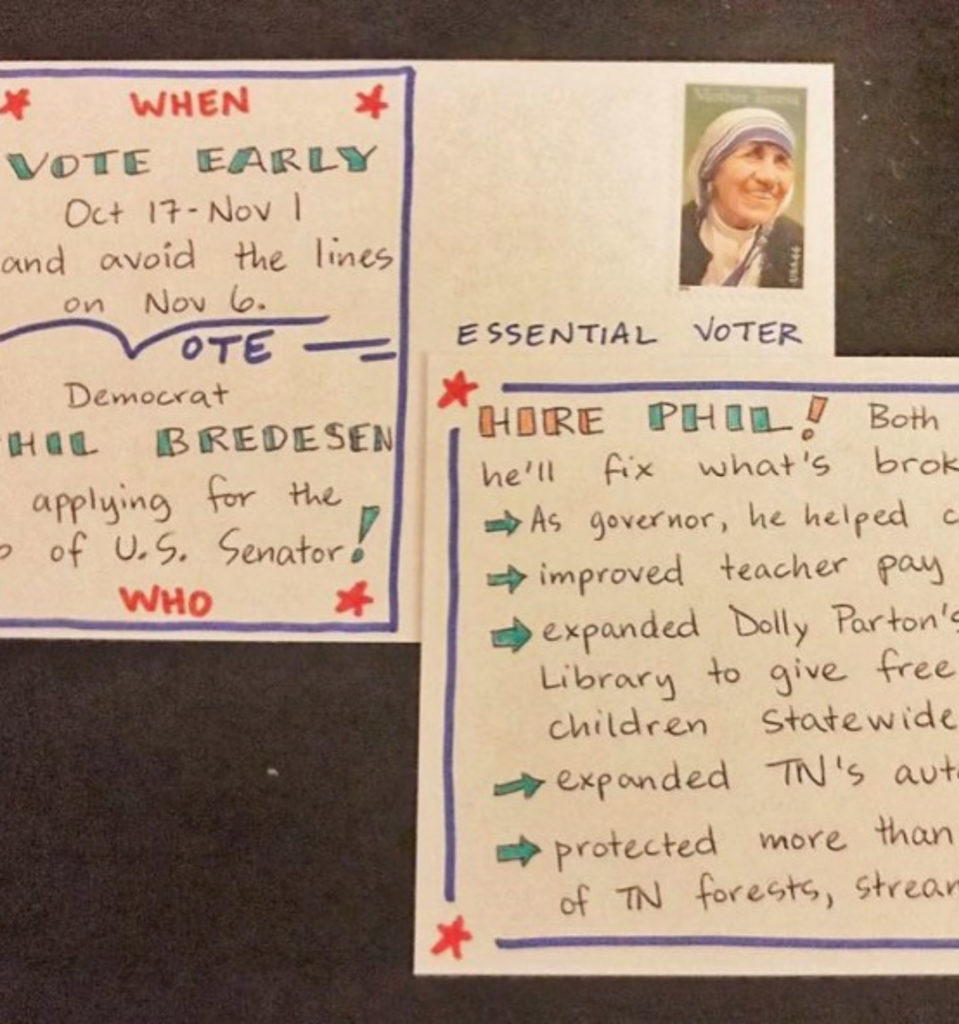 WHEN
VOTE EARLY
Oct 17-Nov 1
and avoid the lines
on Nov 6.
VOTE
Democrat
HIL BREDESEN
applying for the
of U.S. Senator!
WHO
Mother Teresa
USA44
ESSENTIAL VOTER
HIRE PHIL! Both
he'll fix what's brok
→ As governor, he helped c
→ improved teacher pay
→ expanded Dolly Parton's
Library to give free
children statewide
→ expanded TN's aut
→ protected more than
of TN forests, strea